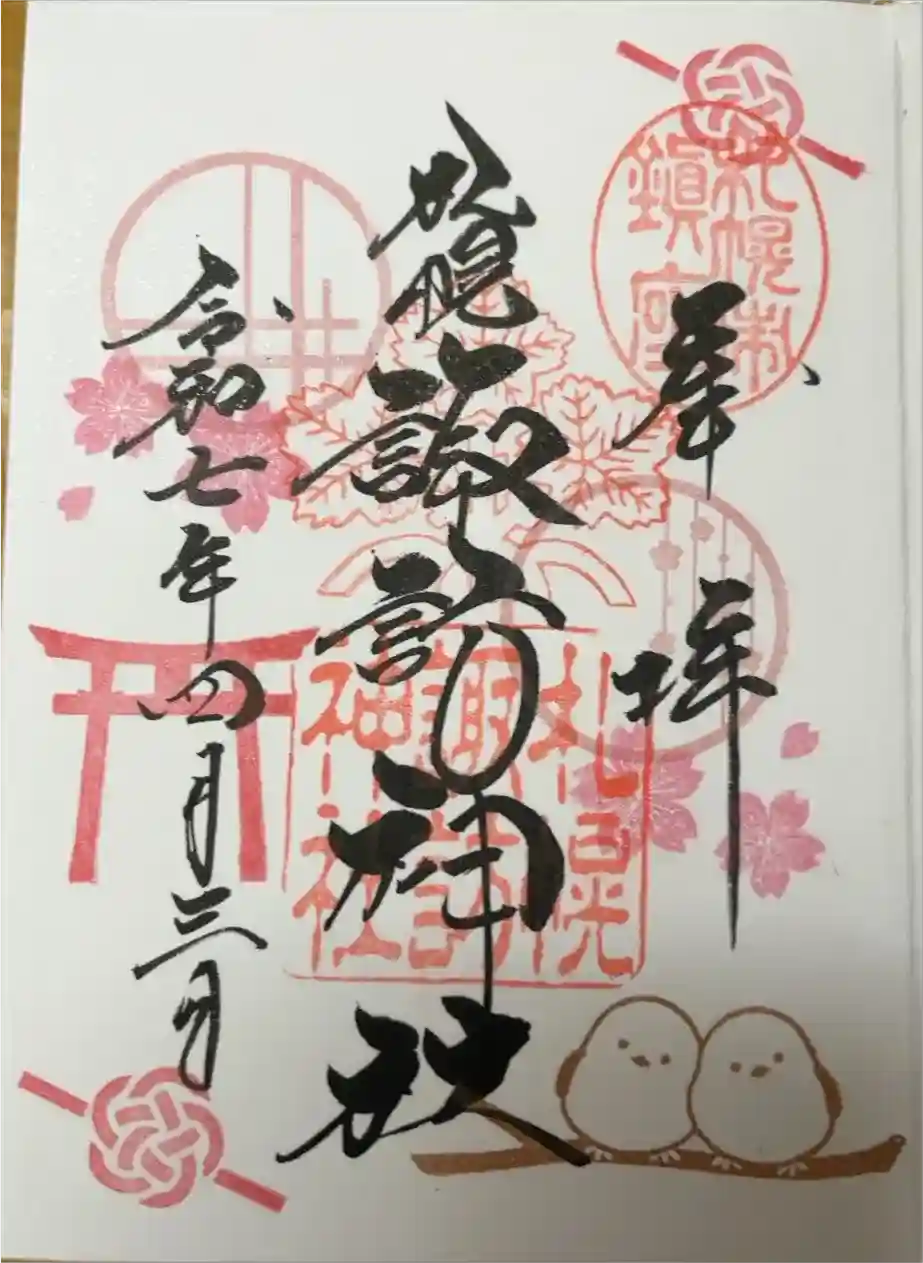 奉拝
札幌市
鎮座
札幌諏訪神社
札幌
諏訪
神社
令和七年四月三日